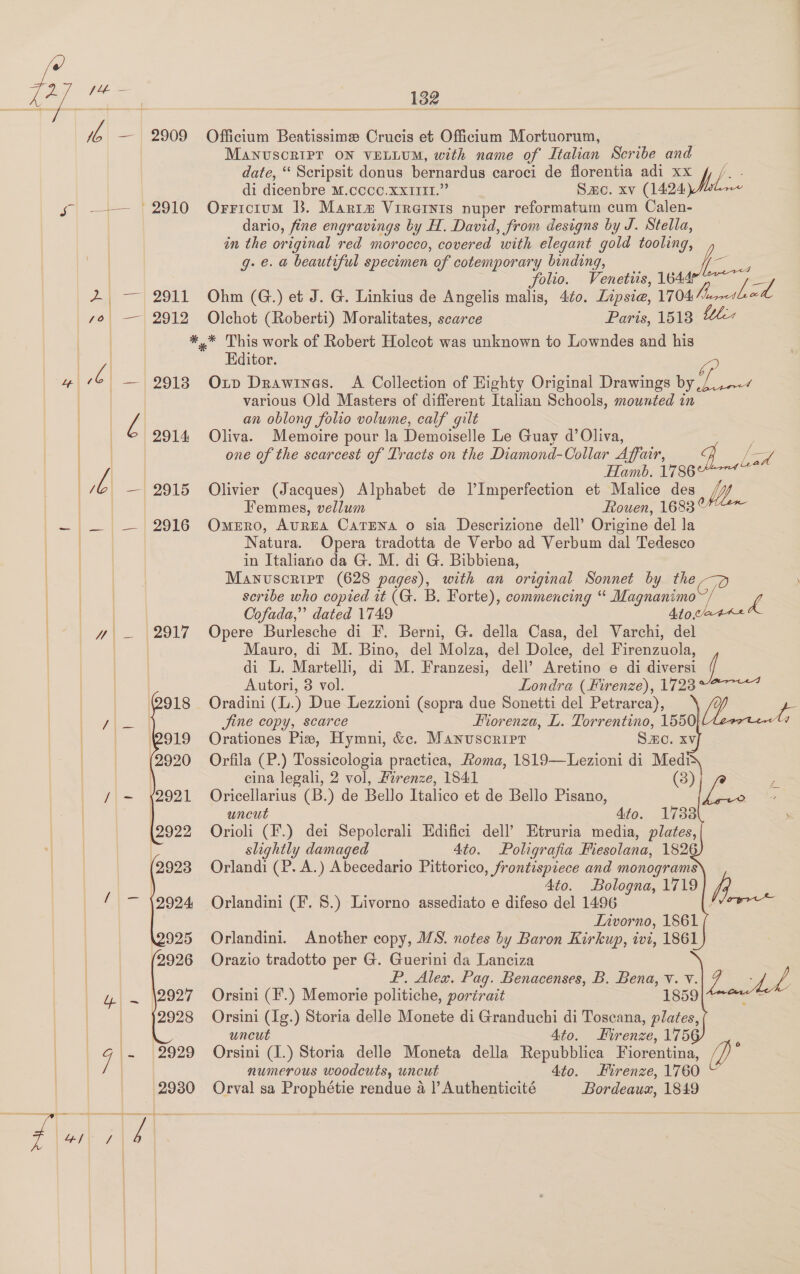 132
16 — 2909 Officium Beatissimæ Crucis et Officium Mortuorum,
MANUSCRIPT ON VELLUM, with name of Italian Scribe and
date, “ Scripsit donus bernardus caroci de florentia adi xx
di dicenbre M.CCCC.XXIIII.” SÆC. XV (1424)
5 — — 2910 OFFICIUM B. MARIÆ VIRGINIS nuper reformatum cum Calen-
dario, fine engravings by H. David, from designs by J. Stella,
in the original red morocco, covered with elegant gold tooling,
g. e. a beautiful specimen of cotemporary binding,
folio. Venetiis, 1644
2 — 2911 Ohm (G.) et J. G. Linkius de Angelis malis, 4to. Lipsiæ, 1704
10 — 2912 Olchot (Roberti) Moralitates, scarce Paris, 1513
*** This work of Robert Holcot was unknown to Lowndes and his
Editor.
4 16 — 2913 OLD DRAWINGS. A Collection of Eighty Original Drawings by
various Old Masters of different Italian Schools, mounted in
an oblong folio volume, calf gilt
6 2914 Oliva. Memoire pour la Demoiselle Le Guay d’Oliva,
one of the scarcest of Tracts on the Diamond-Collar Affair,
Hamb. 1786
16 — 2915 Olivier (Jacques) Alphabet de l’Imperfection et Malice des
Femmes, vellum Rouen, 1683
— — — 2916 OMERO, AUREA CATENA o sia Descrizione dell’ Origine del la
Natura. Opera tradotta de Verbo ad Verbum dal Tedesco
in Italiano da G. M. di G. Bibbiena,
MANUSCRIPT (628 pages), with an original Sonnet by the
scribe who copied it (G. B. Forte), commencing “ Magnanimo
Cofada,” dated 1749 4to.
11 — 2917 Opere Burlesche di F. Berni, G. della Casa, del Varchi, del
Mauro, di M. Bino, del Molza, del Dolce, del Firenzuola,
di L. Martelli, di M. Franzesi, dell’ Aretino e di diversi
Autori, 3 vol. Londra (Firenze), 1723
2918 Oradini (L.) Due Lezzioni (sopra due Sonetti del Petrarca),
1 — fine copy, scarce Fiorenza, L. Torrentino, 1550
2919 Orationes Piæ, Hymni, &c. MANUSCRIPT SÆC. XV
2920 Orfila (P.) Tossicologia practica, Roma, 1819—Lezioni di Medi-
cina legali, 2 vol, Firenze, 1841 (3)
1 — 2921 Oricellarius (B.) de Bello Italico et de Bello Pisano,
uncut 4to. 1733
2922 Orioli (F.) dei Sepolcrali Edifici dell’ Etruria media, plates,
slightly damaged 4to. Poligrafia Fiesolana, 1826
2923 Orlandi (P. A.) Abecedario Pittorico, frontispiece and monograms
4to. Bologna, 1719
1 — 2924 Orlandini (F. S.) Livorno assediato e difeso del 1496
Livorno, 1861
2925 Orlandini. Another copy, MS. notes by Baron Kirkup, ivi, 1861
2926 Orazio tradotto per G. Guerini da Lanciza
P. Alex. Pag. Benacenses, B. Bena, V. Y.
4 — 2927 Orsini (F.) Memorie politiche, portrait 1859
2928 Orsini (Ig.) Storia delle Monete di Granduchi di Toscana, plates,
uncut 4to. Firenze, 1756
9 — 2929 Orsini (I.) Storia delle Moneta della Repubblica Fiorentina,
numerous woodcuts, uncut 4to. Firenze, 1760
2930 Orval sa Prophétie rendue à l’Authenticité Bordeaux, 1849